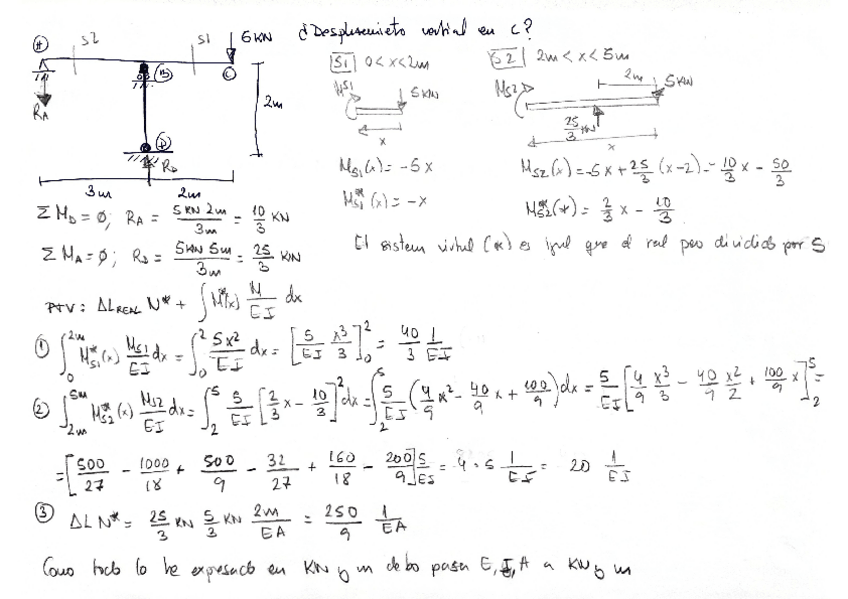 ¿Desplazamiento vertial en C?
A S2 S1 5KN
B C
2m
R_A
D
R_D
3m 2m
S1 0<x<2m
M_S1 5KN
x
M_S1(x) = -5x
M*_S1(x) = -x
S2 2m<x<5m
2m
M_S2 5KN
25/3 KN
x
M_S2(x) = -5x + 25/3 (x-2) = 10/3 x - 50/3
M*_S2(x) = 2/3 x - 10/3
El sistem virtual (*) es igual que el real pero dividido por 5
Σ M_D = ∅; R_A = 5KN 2m / 3m = 10/3 KN
Σ M_A = ∅; R_D = 5KN 5m / 3m = 25/3 KN
PTV: ΔL_REAL N* + ∫ M*(x) M/EI dx
① ∫_0^2m M*_S1(x) M_S1/EI dx = ∫_0^2 5x²/EI dx = [5/EI x³/3]_0^2 = 40/3 1/EI
② ∫_2m^5m M*_S2(x) M_S2/EI dx = ∫_2^5 5/EI [2/3 x - 10/3]² dx = ∫_2^5 5/EI (4/9 x² - 40/9 x + 100/9) dx = 5/EI [4/9 x³/3 - 40/9 x²/2 + 100/9 x]_2^5 =
= [500/27 - 1000/18 + 500/9 - 32/27 + 160/18 - 200/9] 5/EI = 4·5 1/EI = 20 1/EI
③ ΔL N* = 25/3 KN 5/3 KN 2m/EA = 250/9 1/EA
Como todo lo he expresado en KN y m debo pasar E, I, A a KN y m